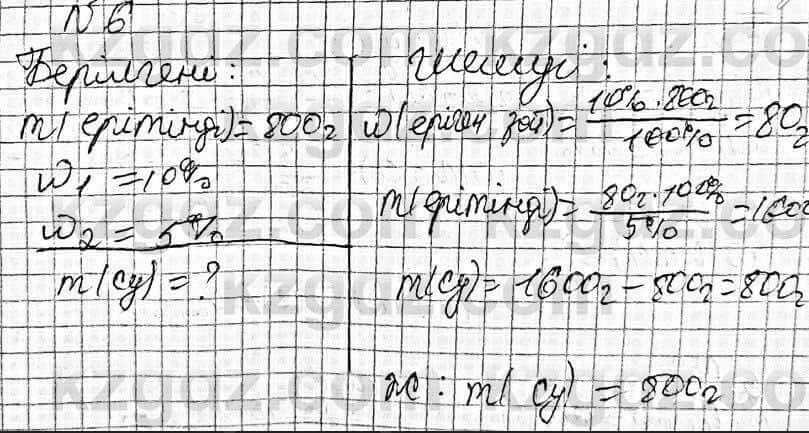 №6
Берілгені:
m(ерітінді)=800г
w1=10%
w2=5%
m(су)=?
Шешуі:
w(еріген зат)=10%·800г/100%=80г
m(ерітінді)=80г·100%/5%=1600г
m(су)=1600г-800г=800г
Ж: m(су)=800г
kzgdz.com